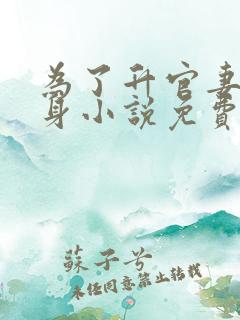 為了升官妻
身小說免費
蘇子兮
未經同意禁止轉載